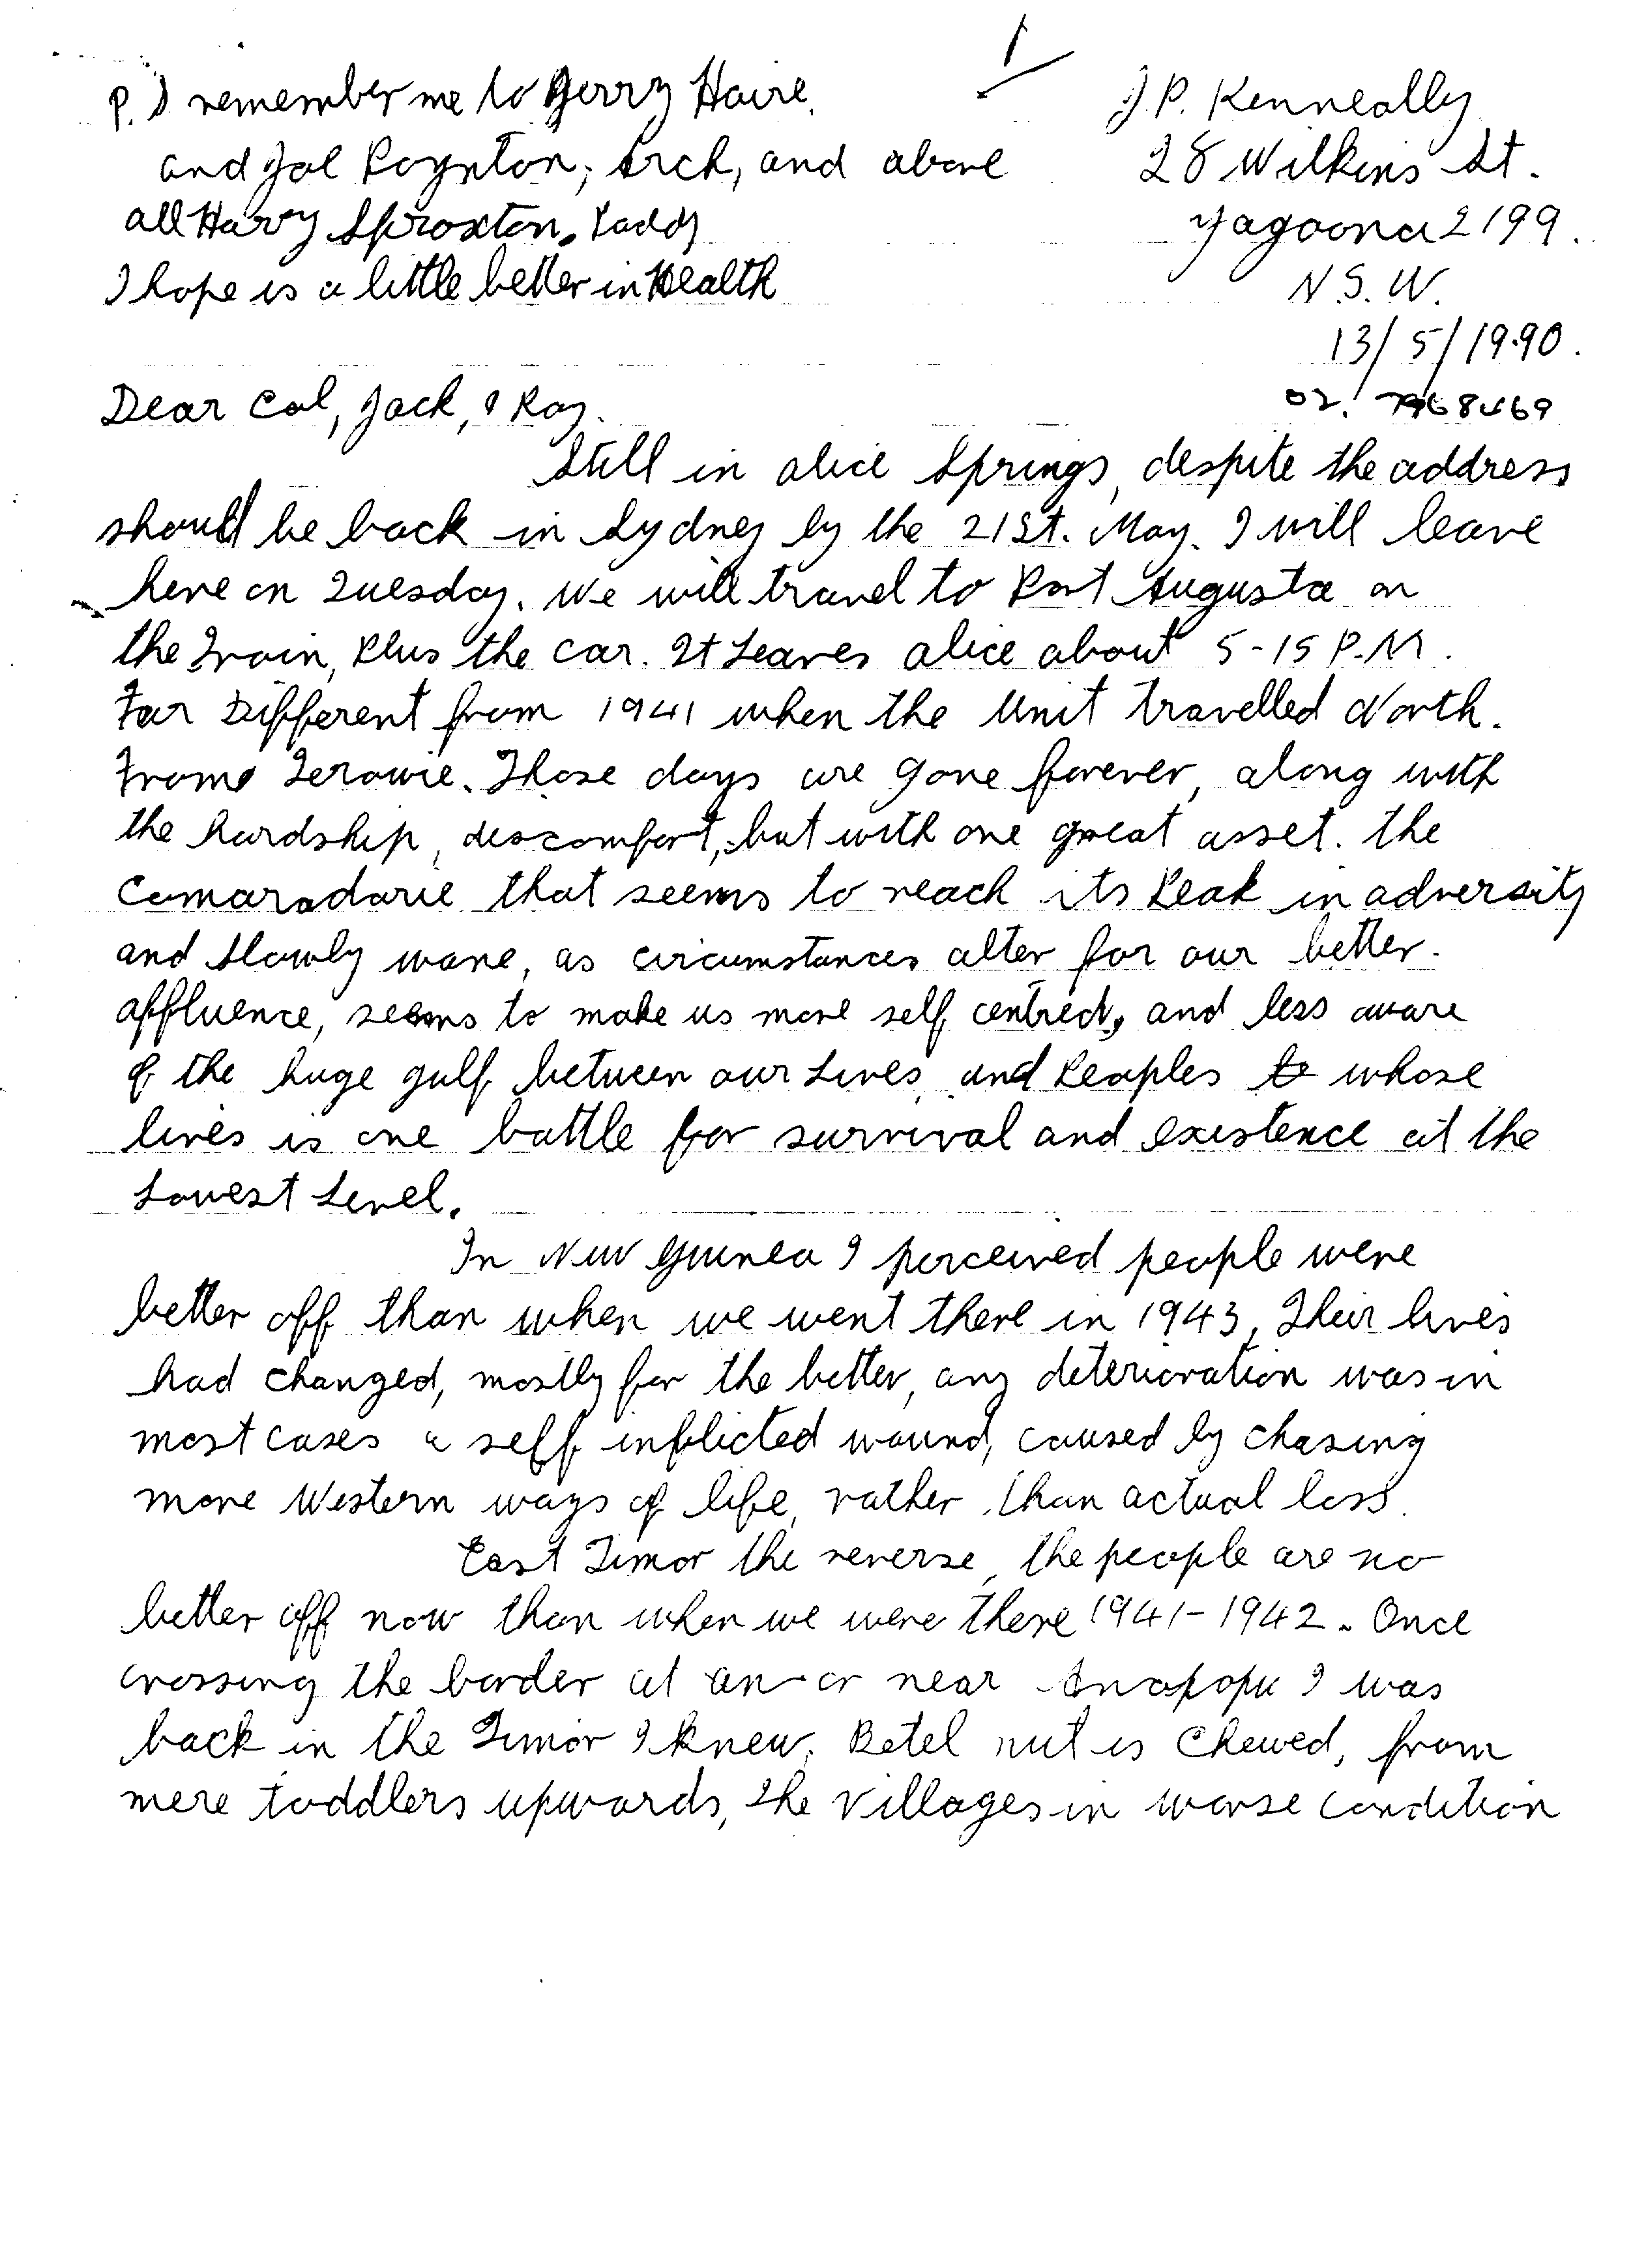 P.S remember me to Gerry Haire,
and Joe Poynton, Arch, and above
all Harry Sproxton. Paddy
I hope is a little better in Health
1
J.P. Kenneally
28 Wilkins St.
Yagoona 2199.
N.S.W.
13/5/1990.
02.
Dear Col, Jack, & Ray.
Still in Alice Springs, despite the address
should be back in Sydney by the 21St. May. I will leave
here on Tuesday. We will travel to Port Augusta on
the Train, Plus the car. It Leaves Alice about 5-15 P.M.
Far Different from 1941 when the Unit travelled North.
From Terowie. Those days are gone forever, along with
the hardship, discomfort, but with one great asset. the
Camaradarie that seems to reach its Peak in adversity
and slowly wane, as circumstances alter for our better.
Affluence, seems to make us more self centred, and less aware
of the huge gulf between our Lives, and Peoples whose
lives is one battle for survival and existence at the
Lowest Level.
In New Guinea I perceived people were
better off than when we went there in 1943, Their lives
had changed, mostly for the better, any deterioration was in
most cases a self inflicted wound, caused by chasing
more Western ways of life, rather than actual loss.
East Timor the reverse, the people are no
better off now than when we were there 1941-1942. Once
crossing the border at an or near I was
back in the Timor I knew. Betel nut is Chewed, from
mere toddlers upwards, The Villages in worse condition